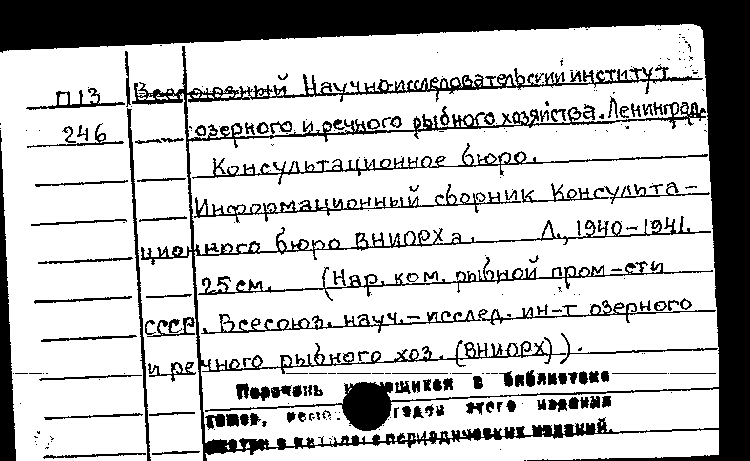 П13 Всесоюзный Научно-исследовательский институт
246 озерного и речного рыбного хозяйства. Ленинград.
Консультационное бюро.
Информационный сборник Консульта-
ционного бюро ВНИОРХа. Л., 1940-1941.
25 см. (Нар. ком. рыбной пром-сти
СССР. Всесоюз. науч.-исслед. ин-т озерного
и речного рыбного хоз. (ВНИОРХ)).
Перечень имеющихся в библиотеке
томов, годов этого издания
смотри в каталоге периодических изданий.